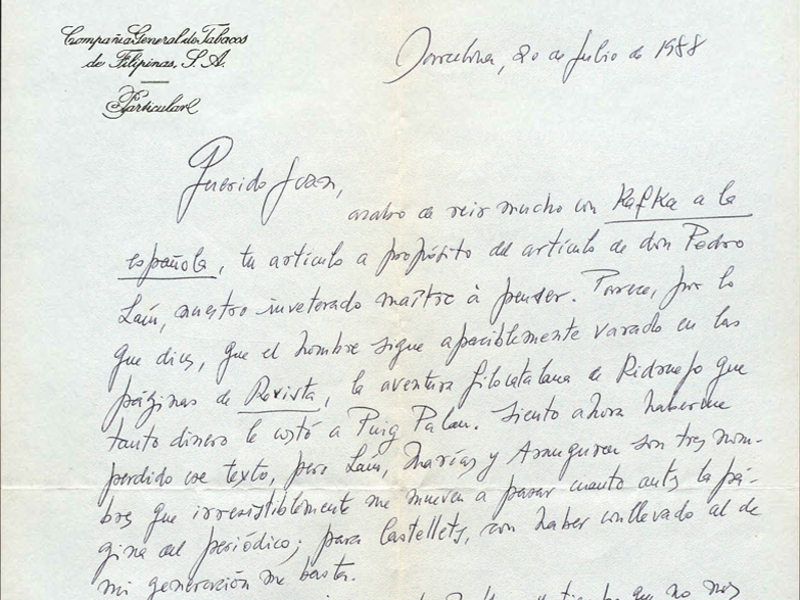 Compañía General de Tabacos
de Filipinas, S. A.
Particular
Barcelona, 20 de Julio de 1988
Querido Joan,
acabo de reir mucho con Kafka a la
española, tu artículo a propósito del artículo de don Pedro
Laín, nuestro inveterado maître à penser. Parece, por lo
que dices, que el hombre sigue apaciblemente varado en las
páginas de Revista, la aventura filocatalana de Ridruejo que
tanto dinero le costó a Puig Palau. Siento ahora haberme
perdido ese texto, pero Laín, Marías y Aranguren son tres nom-
bres que irresistiblemente me mueven a pasar cuanto antes la pá-
gina del periódico; para Castellets, con haber conllevado al de
mi generación me basta.
que no nos